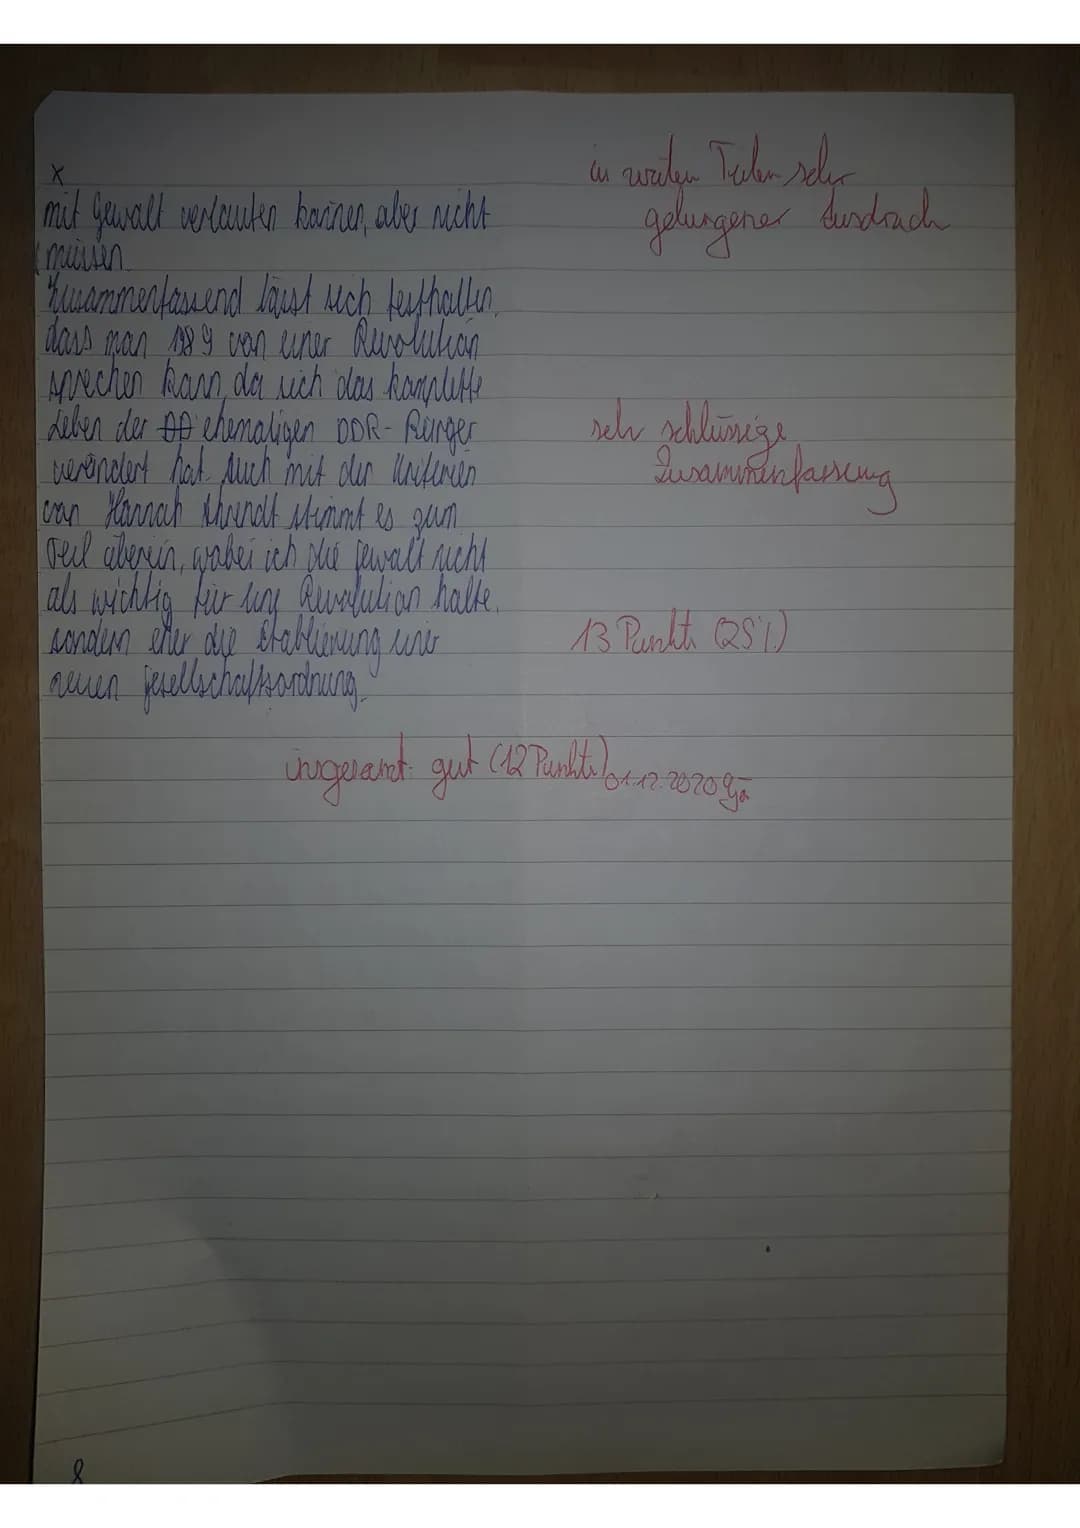 x
mit Gewalt verlaufen können, aber nicht
müssen.
Zusammenfassend lässt sich festhalten,
dass man 1989 von einer Revolution
sprechen kann, da sich das komplette
Leben der ehemaligen DDR-Bürger
verändert hat. Auch mit den Kriterien
von Hannah Ahrendt stimmt es zum
Teil überein, wobei ich die Gewalt nicht
als wichtig für eine Revolution halte,
sondern eher die Etablierung einer
neuen Gesellschaftsordnung.
in weiten Teilen sehr
gelungener Ausdruck
sehr schlüssige
Zusammenfassung
13 Punkte (25%)
insgesamt: gut (12 Punkte) 01.12.2020
8